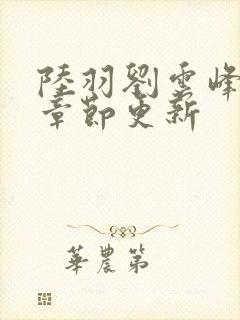 陸羽劉雲峰
章節更新
華農第